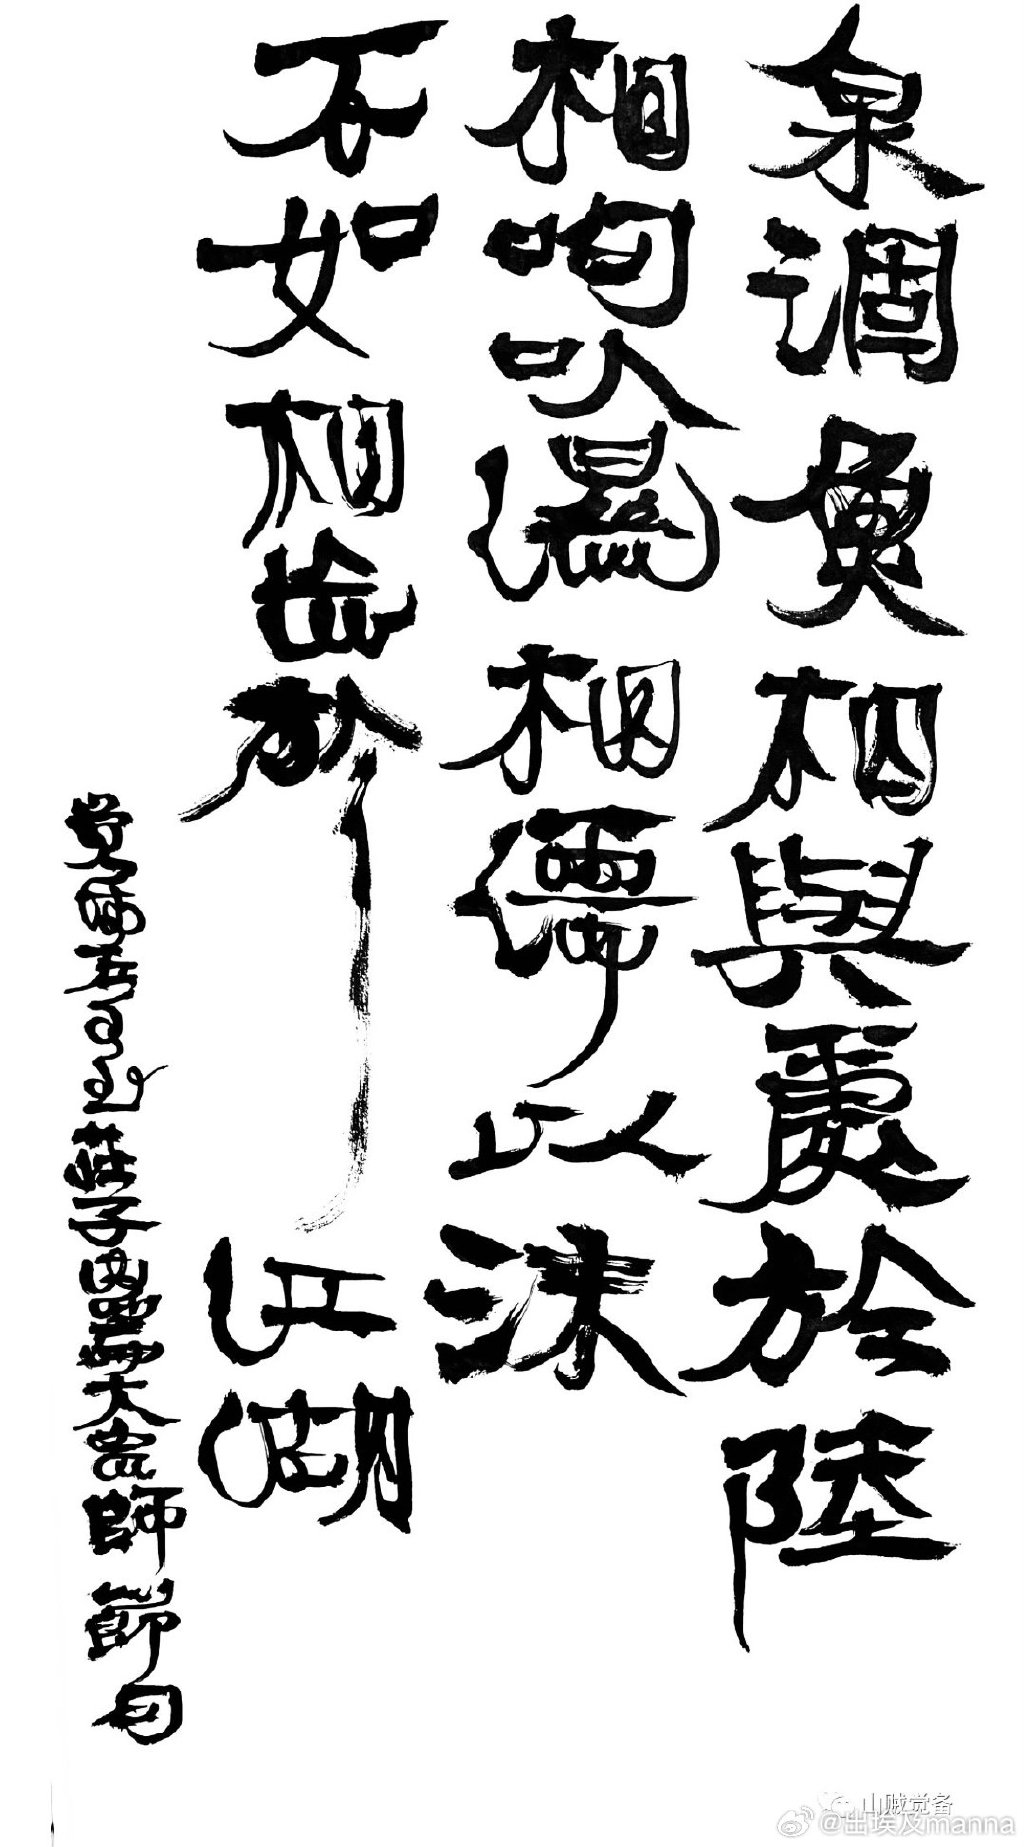 泉涸魚相與處於陸
相呴以濕相濡以沫
不如相忘於江湖
觉備莊子內篇大宗師節句
山贼觉备
@出埃及manna